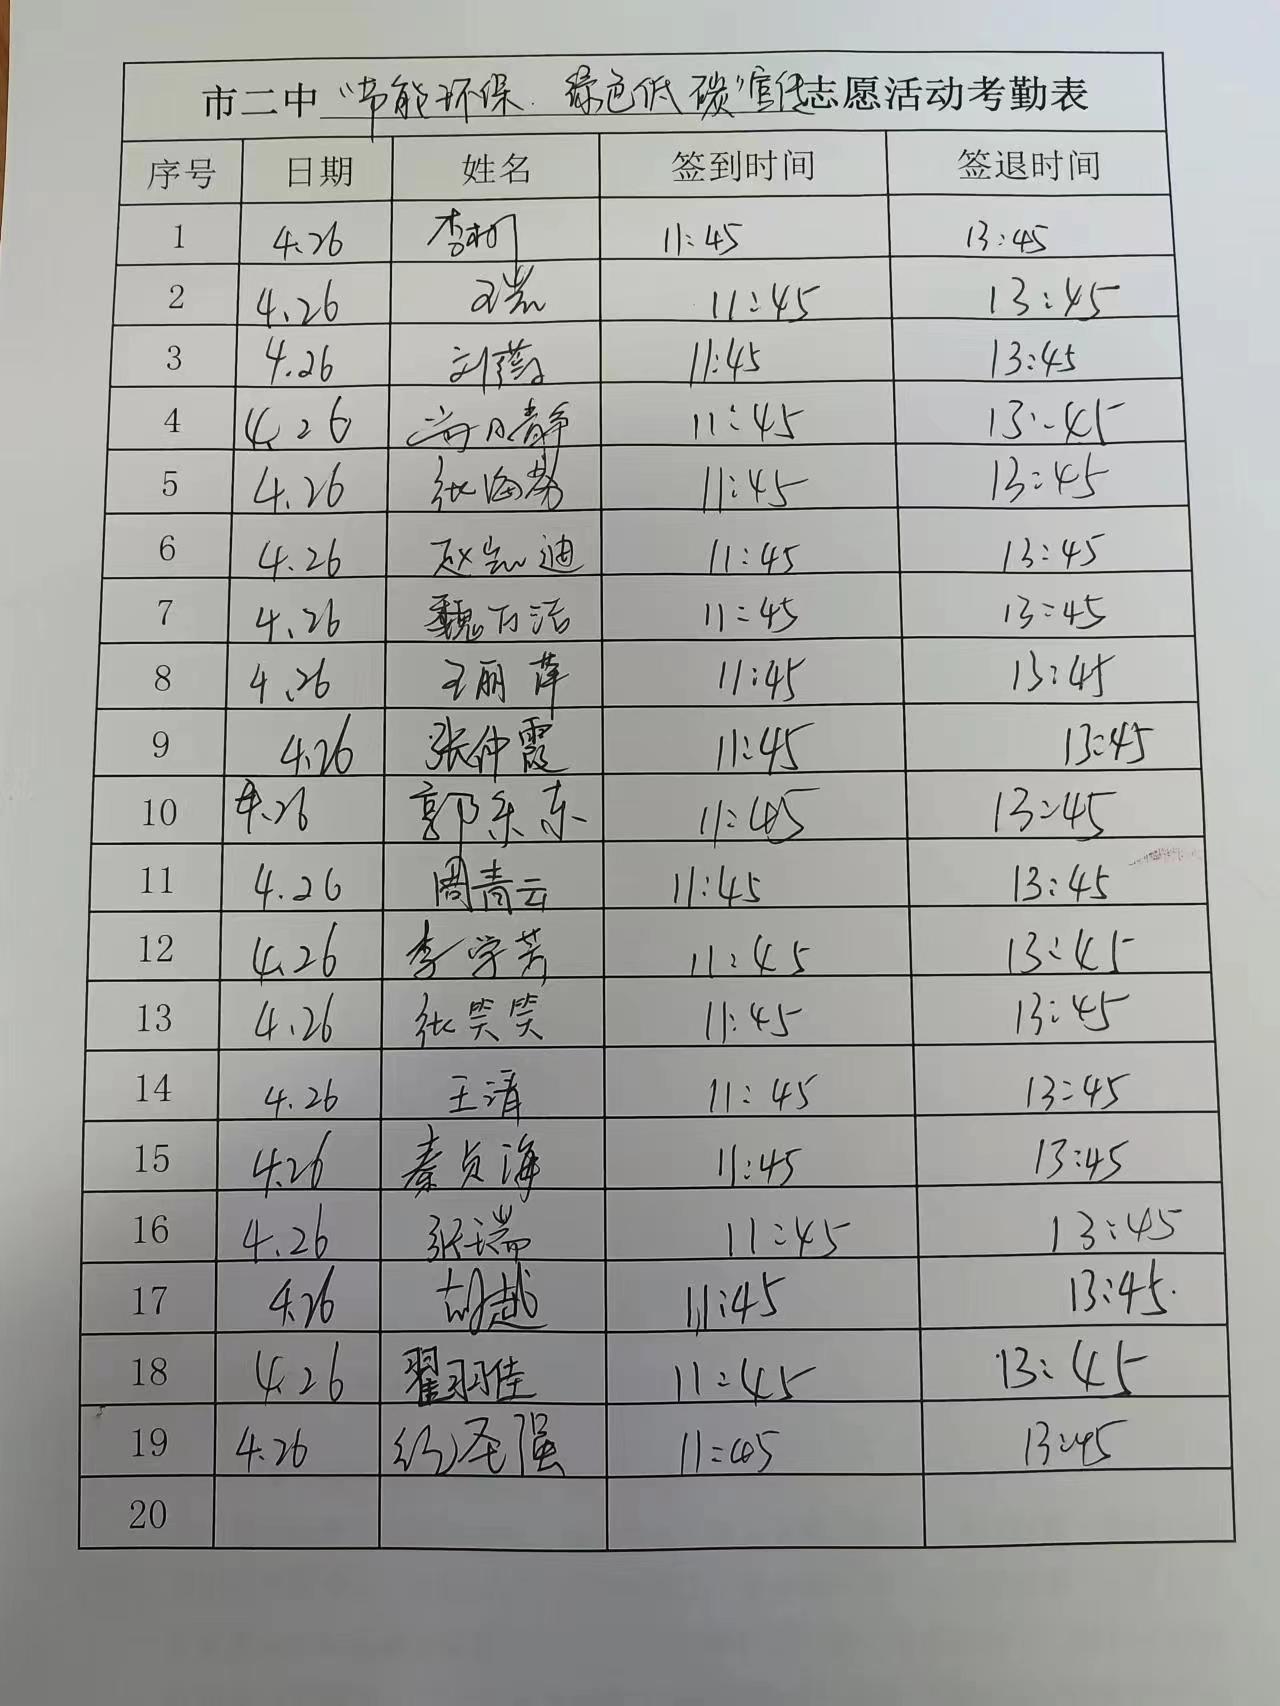 市二中“节能环保 绿色低碳”宣传志愿活动考勤表
序号 日期 姓名 签到时间 签退时间
1 4.26 李树 11:45 13:45
2 4.26 王岚 11:45 13:45
3 4.26 刘 11:45 13:45
4 4.26 静 11:45 13:45
5 4.26 张海 11:45 13:45
6 4.26 赵 迪 11:45 13:45
7 4.26 魏 洁 11:45 13:45
8 4.26 王丽萍 11:45 13:45
9 4.26 张仲霞 11:45 13:45
10 4.26 郭乐东 11:45 13:45
11 4.26 周青云 11:45 13:45
12 4.26 李学芳 11:45 13:45
13 4.26 张笑笑 11:45 13:45
14 4.26 王清 11:45 13:45
15 4.26 秦贞海 11:45 13:45
16 4.26 张瑞 11:45 13:45
17 4.26 胡越 11:45 13:45
18 4.26 翟羽佳 11:45 13:45
19 4.26 纪圣强 11:45 13:45
20